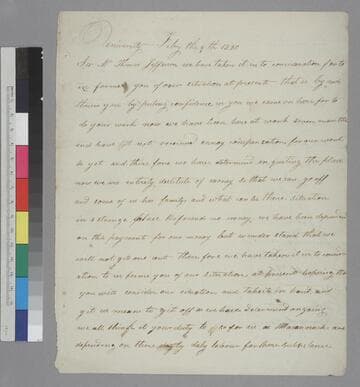 University Feby the 9th 1820
Sir Mr Thomas Jefferson we have taken it in to consideration for to
in forme you of our situation at present that is by aus
them you by puting confidence in you we came on here for to
do your work now we have been here at work seven months
and have not received enney compensation for our work
as yet and there fore we have determined on quiting the place
now we are entirely destitute of money so that we can go off
and some of us has familys and what can be there situation
in a strange place Defconed no money we have been dependin
on the payment for our money but we under stand that we
will not get one cent There fore we have taken it in to consider
ation to in forme you of our situation at present hopeing that
you will consider our situation and take it in hand and
get us means to get off as we have determined on going
we all think it your duty to do so for us as Mecannicks are
depending on there daly labour for there subsistance